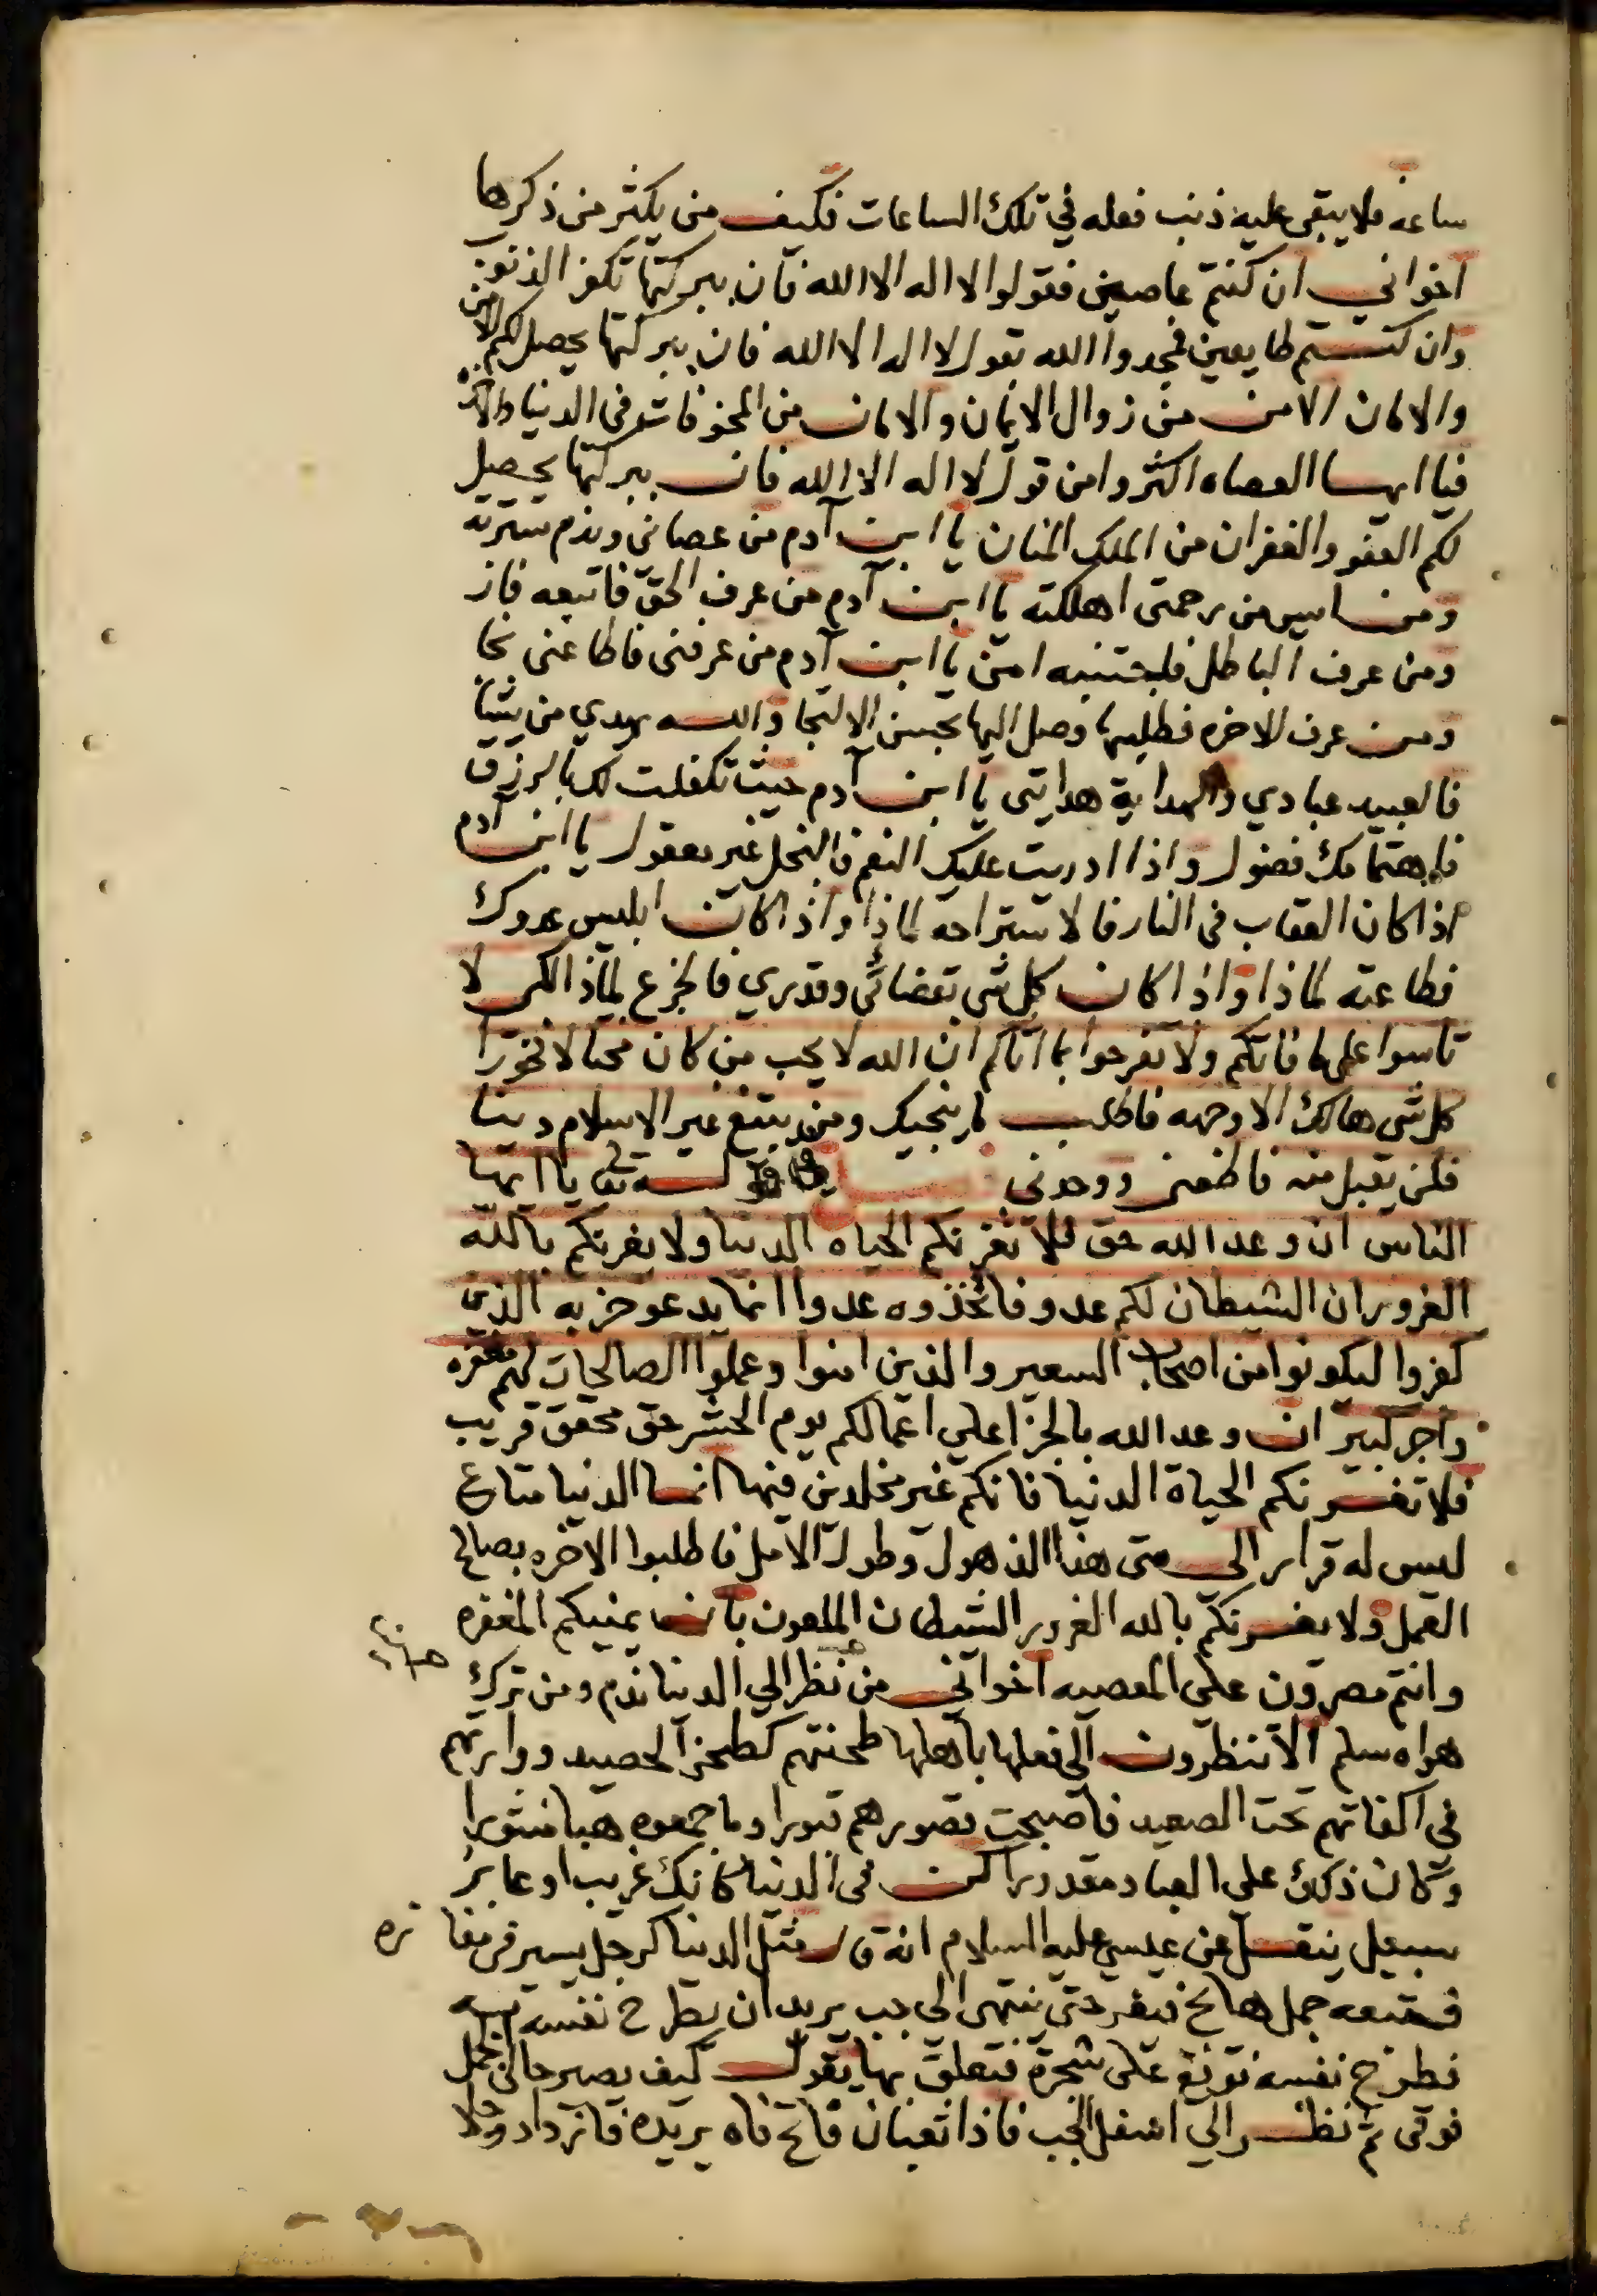 ساعه فلا يبقى عليه ذنب فعله في تلك الساعات فكيف من يكثر من ذكرها
اخواني ان كنتم عاصين فقولوا لا اله الا الله فان ببركتها تكفر الذنوب
وان كنتم طايعين فجددوا الله بقول لا اله الا الله فان ببركتها يحصل لكم الامن
والامان الامن من زوال الايمان والامان من المخوفات في الدنيا والاخره
فيا ايها العصاه اكثروا من قول لا اله الا الله فان ببركتها يحصل
لكم العفو والغفران من الملك المنان يا ابن آدم من عصاني وندم سترته
ومن ايس من رحمتى اهلكته يا ابن آدم من عرف الحق فاتبعه فاز
ومن عرف الباطل فاجتنبه امن يا ابن آدم من عرفنى فاطاعنى نجا
ومن عرف الاخره فطلبها وصل اليها بحسن الالتجا والله يهدي من يشا
فالعبيد عبادي والهداية هدايتى يا ابن آدم حيث تكفلت لك بالرزق
فاهتمامك فضول واذا ادريت عليك النعم فالبخل غير معقول يا ابن آدم
اذا كان العقاب في النار فالاستراحة لماذا واذا كان ابليس عدوك
فطاعته لماذا واذا كان كل شى بقضائى وقدري فالجزع لماذا لكى لا
تاسوا على ما فاتكم ولا تفرحوا بما اتاكم ان الله لا يحب من كان مختالا فخورا
كل شى هالك الا وجهه فاطلب ما ينجيك ومن يبتغ غير الاسلام دينا
فلن يقبل منه فاطعنى ووحدني فصل في قوله تعالى يا ايها
الناس ان وعد الله حق فلا تغرنكم الحياه الدنيا ولا يغرنكم بالله
الغرور ان الشيطان لكم عدو فاتخذوه عدوا انما يدعو حزبه الذين
كفروا ليكونوا من اصحاب السعير والذين امنوا وعملوا الصالحات لهم مغفره
واجر كبير ان وعد الله بالجزا على اعمالكم يوم الحشر حق محقق قريب
فلا تغرنكم الحياة الدنيا فانكم غير مخلدين فيها انما الدنيا متاع
ليس له قرار الى متى هذا الذهول وطول الامل فاطلبوا الاخره بصالح
العمل ولا يغرنكم بالله الغرور الشيطان الملعون بان يمنيكم المغفره
وانتم مصرون على المعصيه اخواني من نظر الى الدنيا ندم ومن ترك
هواه سلم الا تنظرون الى فعلها باهلها طحنتهم كطحن الحصيد ووارتهم
في اكفانهم تحت الصعيد فاصبحت قصورهم قبورا وما جمعوه هبا منثورا
وكان ذلك على العباد مقدورا كن فى الدنيا كانك غريب او عابر
سبيل ينقل عن عيسى عليه السلام انه قال مثل الدنيا كرجل يسير في مفازه
فيتبعه جمل هايج فيفر حتى ينتهى الى جب يريد ان يطرح نفسه فيه
فطرح نفسه فوقع على شجرة فتعلق بها يقول كيف يصير حالى الجمل
فوقى ثم نظر الى اسفل الجب فاذا ثعبان فاتح فاه يريده فازداد وجلا